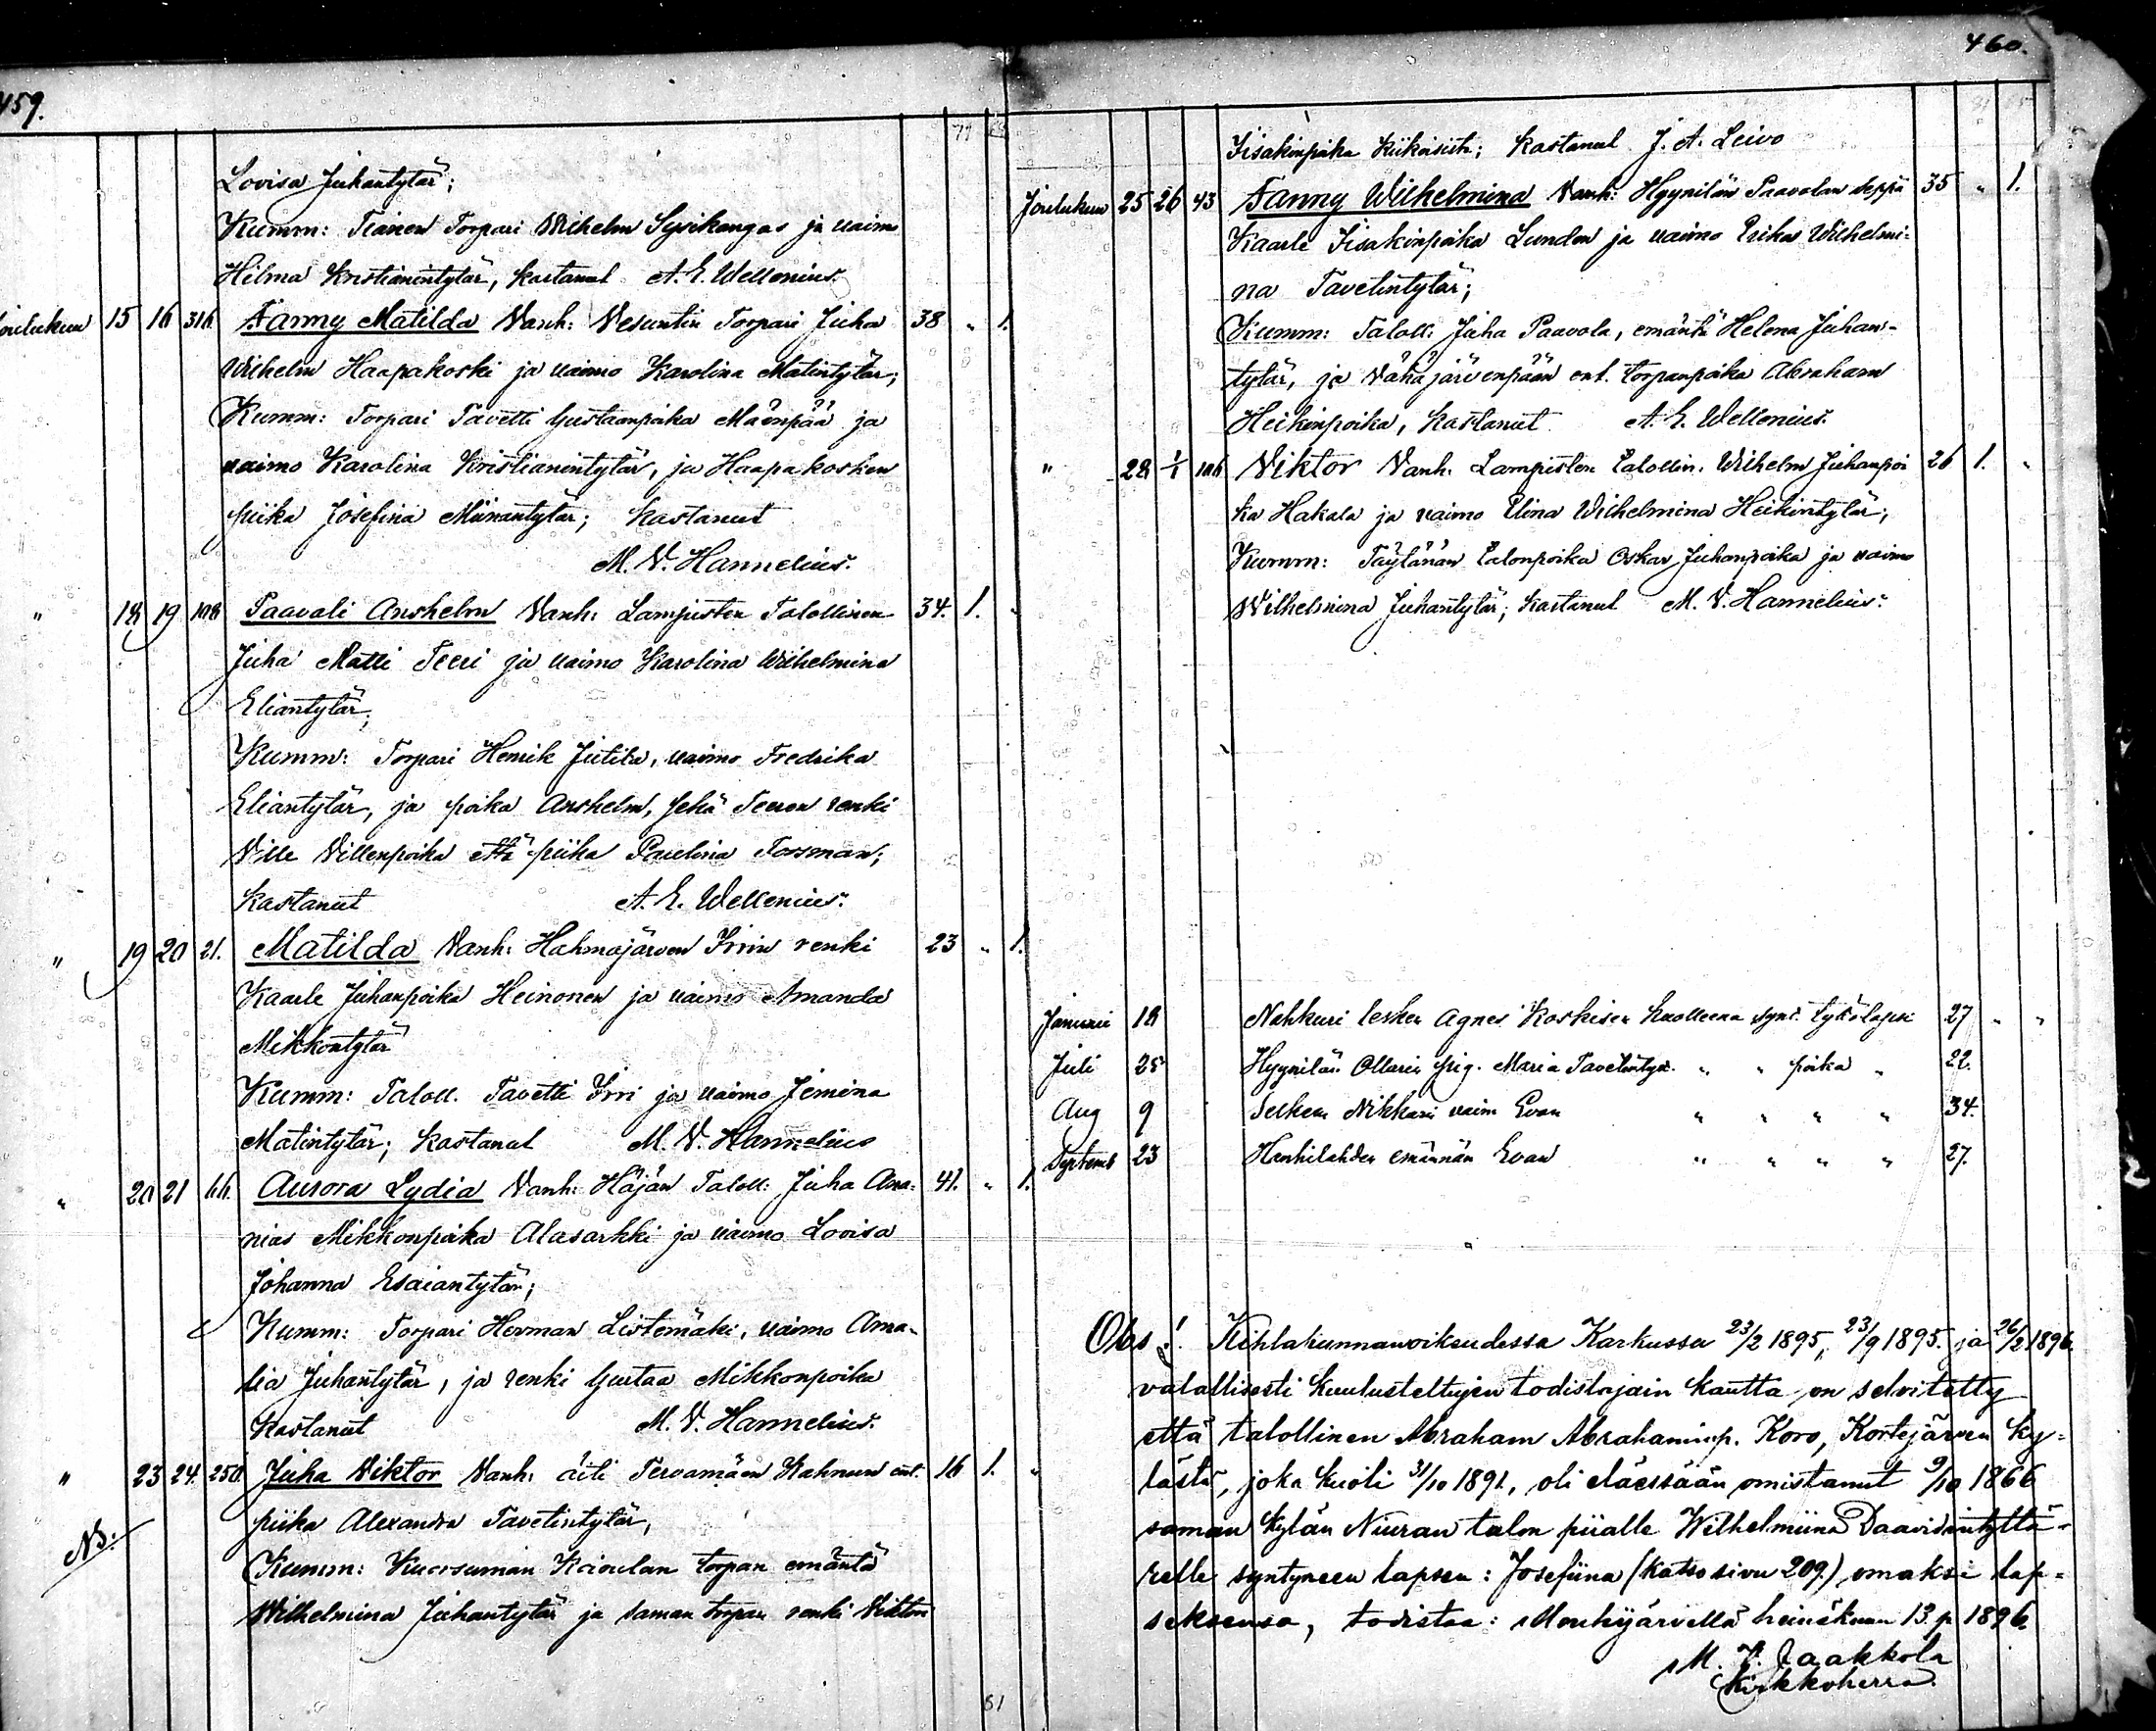 459.
Lovisa Juhantytär;
Kumm: Tiainen Torpari Wilhelm Syvikangas ja vaimo
Hilma Kristianintytär, kastanut A. E. Wellenius.
Joulukuu 15 16 316 Fanny Matilda Vanh: Vesuntin Torpari Juha 38 „ 1.
Wilhelm Haapakoski ja vaimo Karolina Matintytär;
Kumm: Torpari Tavetti Gustaanpoika Mäenpää ja
vaimo Karolina Kristianintytär, ja Haapakosken
piika Josefina Miinantytär; kastanut
M. V. Hannelius.
„ 18 19 108 Paavali Anshelm Vanh: Lampisten Talollinen 34. 1. „
Juha Matti Teeri ja vaimo Karolina Wilhelmina
Eliantytär;
Kumm: Torpari Henrik Jutila, vaimo Fredrika
Eliantytär, ja poika Anshelm, sekä Teeren renki
Ville Villenpoika että piika Paulina Forsman;
kastanut A. E. Wellenius.
„ 19 20 21. Matilda Vanh: Hahmajärven Irrin renki 23 „ 1.
Kaarle Juhanpoika Heinonen ja vaimo Amanda
Mikkontytär
Kumm: Taloll. Tavetti Irri ja vaimo Jemina
Matintytär; kastanut M. V. Hannelius
„ 20 21 66. Aurora Lydia Vanh: Häjän Taloll: Juha Ana= 41. „ 1.
nias Mikkonpoika Alasarkki ja vaimo Lovisa
Johanna Esaiantytär;
Kumm: Torpari Herman Listemäki, vaimo Ama-
lia Juhantytär, ja renki Gustaa Mikkonpoika
kastanut M. V. Hannelius.
„ 23 24. 250 Juha Viktor Vanh: äiti Tervamäen Kahnun ent. 16 1. „
piika Alexandra Tavetintytär,
NB: Kumm: Kuorsuman torpan emäntä
Wilhelmina Juhantytär ja saman torpan renki Viktor
61
460.
Iisakinpoika Kiikoisista; kastanut J. A. Leivo
Joulukuu 25 26 43 Fanny Wilhelmina Vanh: Hyynilän Paavolan seppä 35 „ 1.
Kaarle Iisakinpoika Lunden ja vaimo Erika Wilhelmi-
na Tavetintytär;
Kumm: Taloll: Juha Paavola, emäntä Helena Juhan-
tytär, ja Vähäjärvenpään ent. torpanpoika Abraham
Heikinpoika, kastanut A. E. Wellenius.
„ 28 1/1 106 Viktor Vanh: Lampisten talollin. Wilhelm Juhanpoi 26 1. „
ka Hakala ja vaimo Elina Wilhelmina Heikintytär;
Kumm: Täylänän talonpoika Oskar Juhanpoika ja vaimo
Wilhelmina Juhantytär; kastanut M. V. Hannelius.
Januari 18 Nahkuri lesken Agnes Koskisen kuolleena synt. tytölapsi 27 „ „
Juli 25 Hyynilän Ollarin pig. Maria Tavetintyt. „ „ poika „ 22.
Aug 9 Selkeen Nikkari vaim Evan „ „ „ „ 34.
Septemb 23 Hanhilahden emännän Evan „ „ „ „ 27.
Obs.! Kihlakunnanoikeudessa Karkussa 23/2 1895, 23/9 1895. ja 26/2 1896.
valallisesti kuulusteltujen todistajain kautta on selvitetty
että talollinen Abraham Abrahaminp. Koro, Kortejärven ky=
lästä, joka kuoli 31/10 1891, oli eläessään omistanut 9/10 1866
saman kylän Niuran talon piialle Wilhelmiina Daavidintyttä-
relle syntyneen lapsen: Josefiina (katso sivu 209.) omaksi lap=
seksensa, todistaa: Mouhijärvellä heinäkuun 13. p 1896.
M. V. Jaakkola
Kirkkoherra.